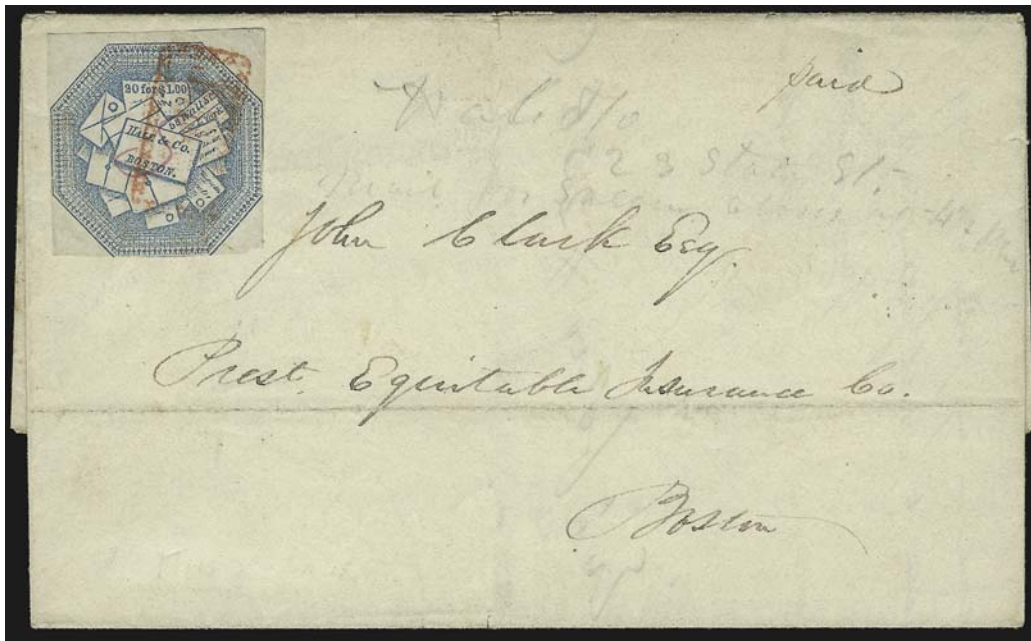 20 for $1.00
HALE & Co.
BOSTON.
paid
23 State St.
John Clark Esq.
Prest. Equitable Insurance Co.
Boston